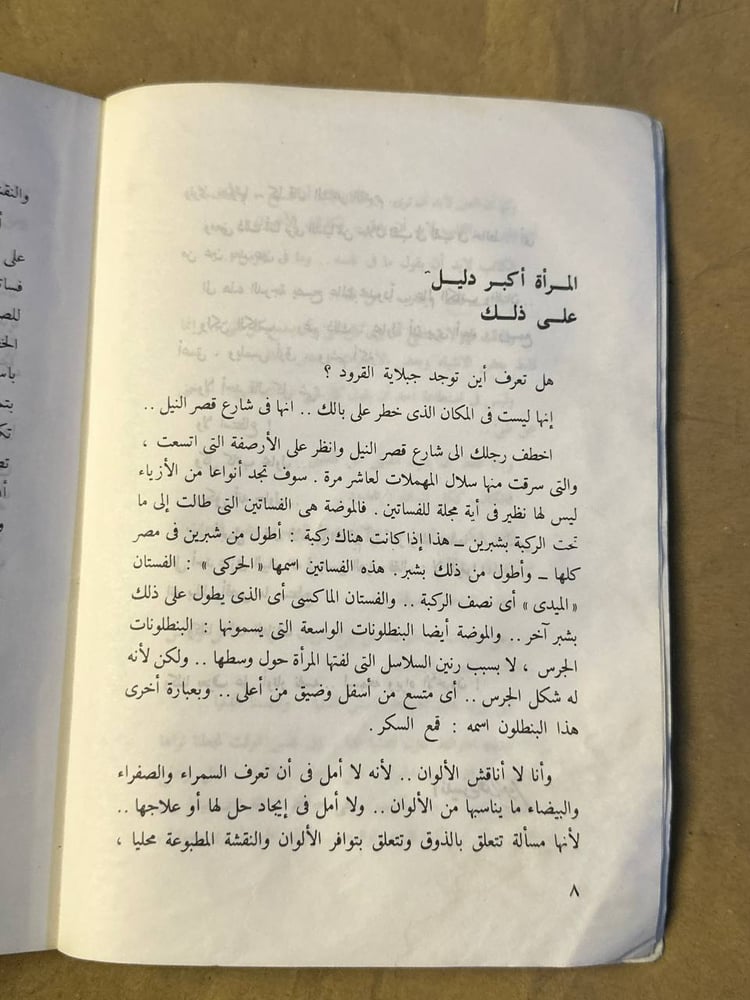 المرأة أكبر دليل
على ذلك
هل تعرف أين توجد جبلاية القرود ؟
إنها ليست فى المكان الذى خطر على بالك .. انها فى شارع قصر النيل ..
اخطف رجلك الى شارع قصر النيل وانظر على الأرصفة التى اتسعت ،
والتى سرقت منها سلال المهملات لعاشر مرة . سوف تجد أنواعا من الأزياء
ليس لها نظير فى أية مجلة للفساتين . فالموضة هى الفساتين التى طالت إلى ما
تحت الركبة بشبرين ــ هذا إذا كانت هناك ركبة : أطول من شبرين فى مصر
كلها ــ وأطول من ذلك بشبر . هذه الفساتين اسمها « الحركى » : الفستان
« الميدى » أى نصف الركبة .. والفستان الماكسى أى الذى يطول على ذلك
بشبر آخر .. والموضة أيضا البنطلونات الواسعة التى يسمونها : البنطلونات
الجرس ، لا بسبب رنين السلاسل التى لفتها المرأة حول وسطها .. ولكن لأنه
له شكل الجرس .. أى متسع من أسفل وضيق من أعلى .. وبعبارة أخرى
هذا البنطلون اسمه : قمع السكر .
وأنا لا أناقش الألوان .. لأنه لا امل فى أن تعرف السمراء والصفراء
والبيضاء ما يناسبها من الألوان .. ولا أمل فى إيجاد حل لها أو علاجها ..
لأنها مسألة تتعلق بالذوق وتتعلق بتوافر الألوان والنقشة المطبوعة محليا ،
٨